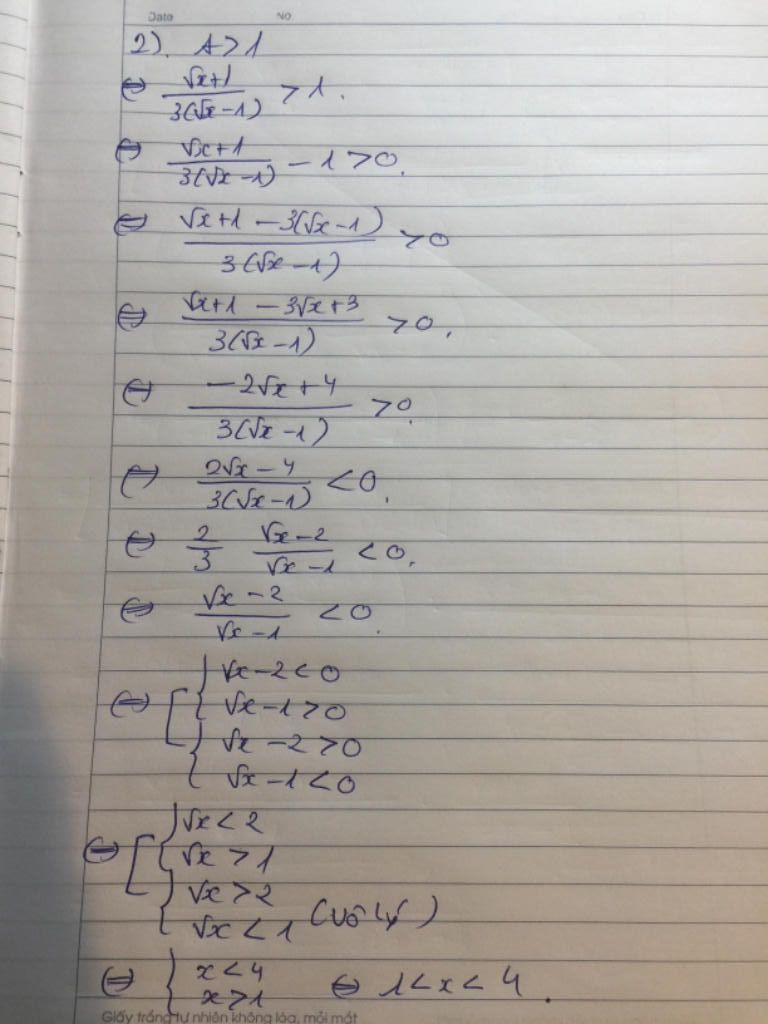 Date No
2). A > 1
⇔ (√x+1)/(3(√x−1)) > 1.
⇔ (√x+1)/(3(√x−1)) − 1 > 0.
⇔ (√x+1 − 3(√x−1))/(3(√x−1)) > 0
⇔ (√x+1 − 3√x+3)/(3(√x−1)) > 0.
⇔ (−2√x+4)/(3(√x−1)) > 0.
⇔ (2√x−4)/(3(√x−1)) < 0.
⇔ 2/3 (√x−2)/(√x−1) < 0.
⇔ (√x−2)/(√x−1) < 0.
⇔ [ { √x−2 < 0
√x−1 > 0
{ √x−2 > 0
√x−1 < 0
⇔ [ { √x < 2
√x > 1
{ √x > 2
√x < 1 (vô lý)
⇔ { x < 4
x > 1 ⇔ 1 < x < 4.
Giấy trắng tự nhiên không lóa, mỏi mắt